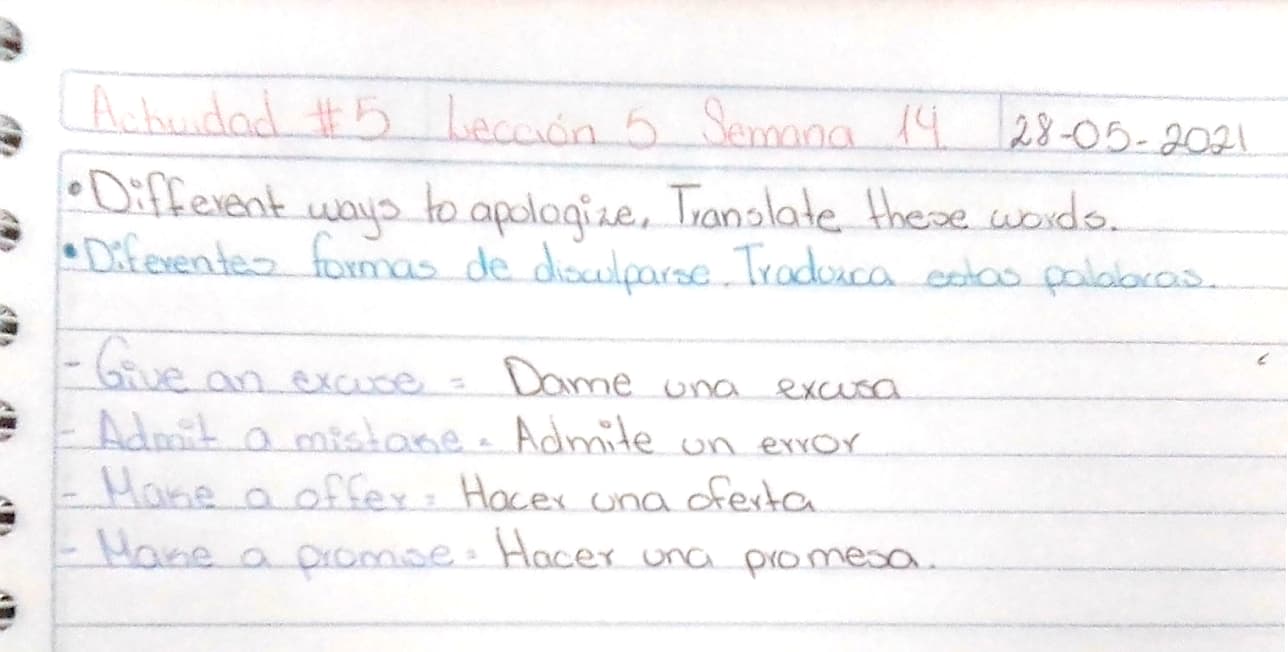 Actividad #5 Lección 5 Semana 14 28-05-2021
• Different ways to apologize, Translate these words.
• Diferentes formas de disculparse. Traduzca estas palabras.
- Give an excuse = Dame una excusa
- Admit a mistake = Admite un error
- Make a offer = Hacer una oferta
- Make a promise = Hacer una promesa.